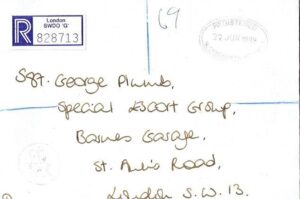 London
SWDO 'G'
R 828713
69
REGISTERED
22 JUN 1989
Sgt. George Plumb,
Special Escort Group,
Barnes Garage,
St. Ann's Road,
London S.W. 13.